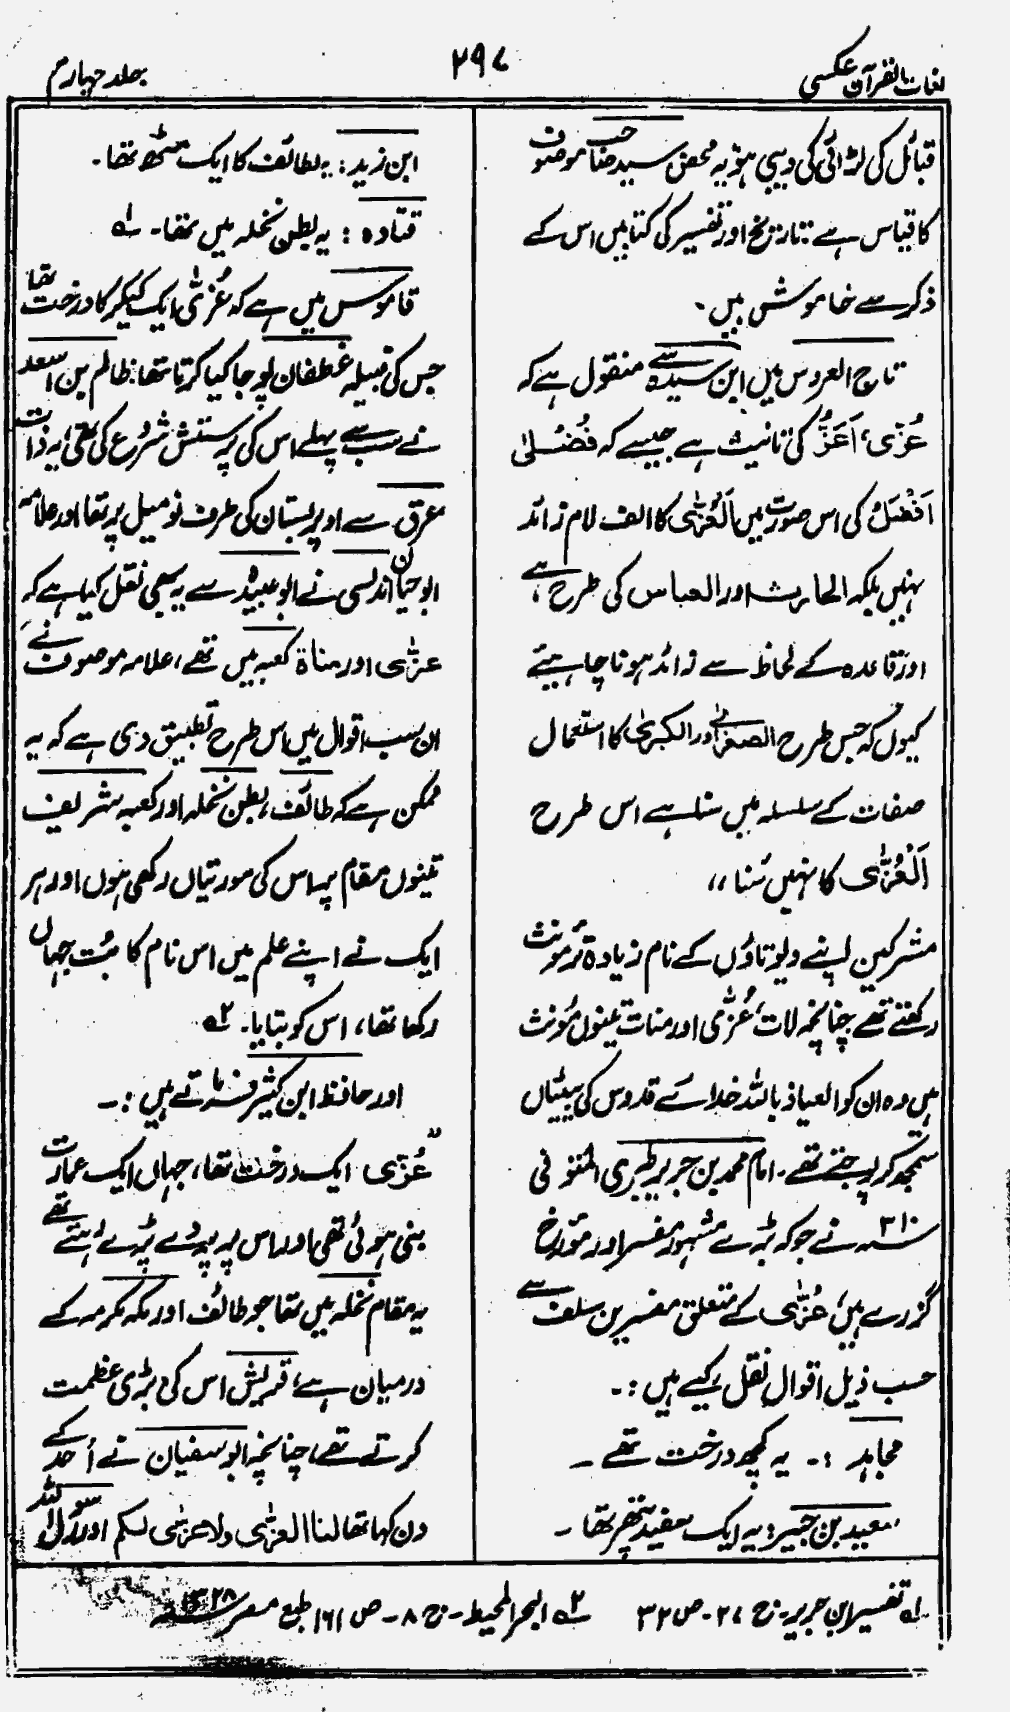 لغات القرآن عکسی
۲۹۷
جلد چہارم
قبائل کی لڑائی کی دیبی ہو یہ محض سید صاحب موصوف
کا قیاس ہے تاریخ اور تفسیر کی کتابیں اس کے
ذکر سے خاموش ہیں۔
تاج العروس میں ابن سیدہ سے منقول ہے کہ
عُزّٰی، اَعَزُّ کی تانیث ہے جیسے کہ فُضْلیٰ
اَفْضَلُ کی اس صورت میں اَلعُزّٰی کا الف لام زائد
نہیں بلکہ الحارث اور العباس کی طرح ہے،
اور قاعدہ کے لحاظ سے زائد ہونا چاہیئے
کیوں کہ جس طرح الصغریٰ اور الکبریٰ کا استعمال
صفات کے سلسلہ میں سنا ہے اس طرح
اَلْعُزّٰی کا نہیں سُنا،،
مشرکین اپنے دیوتاؤں کے نام زیادہ تر مؤنث
رکھتے تھے چنانچہ لات، عُزّٰی اور منات تینوں مؤنث
ہیں وہ ان کو العیاذ باللہ خدائے قدوس کی بیٹیاں
سمجھ کر پوجتے تھے۔ امام محمد بن جریر طبری المتوفی
۳۱۰ نے جو کہ بڑے مشہور مفسر اور مورّخ
گزرے ہیں، عُزّٰی کے متعلق مفسرین سلف سے
حسب ذیل اقوال نقل کیے ہیں:۔
مجاہد :۔ یہ کچھ درخت تھے۔
سعید بن جبیر: یہ ایک سفید پتھر تھا۔
ابن زید: یہ طائف کا ایک مٹھ تھا۔
قتادہ: یہ بطن نخلہ میں تھا۔ لہ
قاموس میں ہے کہ عُزّٰی ایک کیکر کا درخت تھا
جس کی قبیلہ غطفان پوجا کیا کرتا تھا ظالم بن اسعد
نے سب سے پہلے اس کی پرستش شروع کی تھی یہ ذات
عرق سے اوپر بستان کی طرف نو میل پر تھا اور علامہ
ابو حیان اندلسی نے ابو عبیدہ سے یہ بھی نقل کیا ہے کہ
عزّٰی اور مناۃ کعبہ میں تھے، علامہ موصوف نے
ان سب اقوال میں اس طرح تطبیق دی ہے کہ یہ
ممکن ہے کہ طائف، بطن نخلہ اور کعبہ شریف
تینوں مقام پر اس کی مورتیاں رکھی ہوں اور ہر
ایک نے اپنے علم میں اس نام کا بُت جہاں
رکھا تھا، اس کو بتایا۔ ۲ہ
اور حافظ ابن کثیر فرماتے ہیں :۔
”عُزّٰی ایک درخت تھا، جہاں ایک عمارت
بنی ہوئی تھی اور اس پر پردے پڑے رہتے تھے
یہ مقام نخلہ میں تھا جو طائف اور مکہ مکرمہ کے
درمیان ہے، قریش اس کی بڑی عظمت
کرتے تھے، چنانچہ ابو سفیان نے اُحد کے
دن کہا تھا لنا العزّٰی ولا عزّٰی لکم اور رسول اللہ
لہ تفسیر ابن جریر۔ ج ۲۷۔ ص ۳۲ ۲ہ البحر المحیط۔ ج ۸۔ ص ۱۶۱ طبع مصر ۱۳۲۸